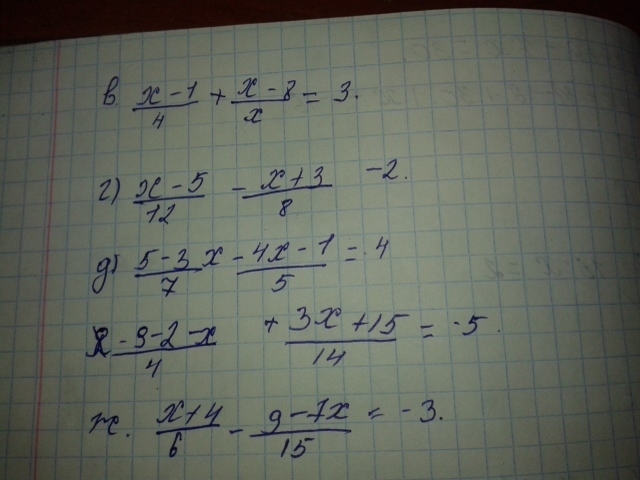 в. (x-1)/4 + (x-8)/x = 3.
г) (x-5)/12 - (x+3)/8 -2.
д) (5-3x)/7 - (4x-1)/5 = 4
(-9-2-x)/4 + (3x+15)/14 = -5.
ж. (x+4)/6 - (9-7x)/15 = -3.